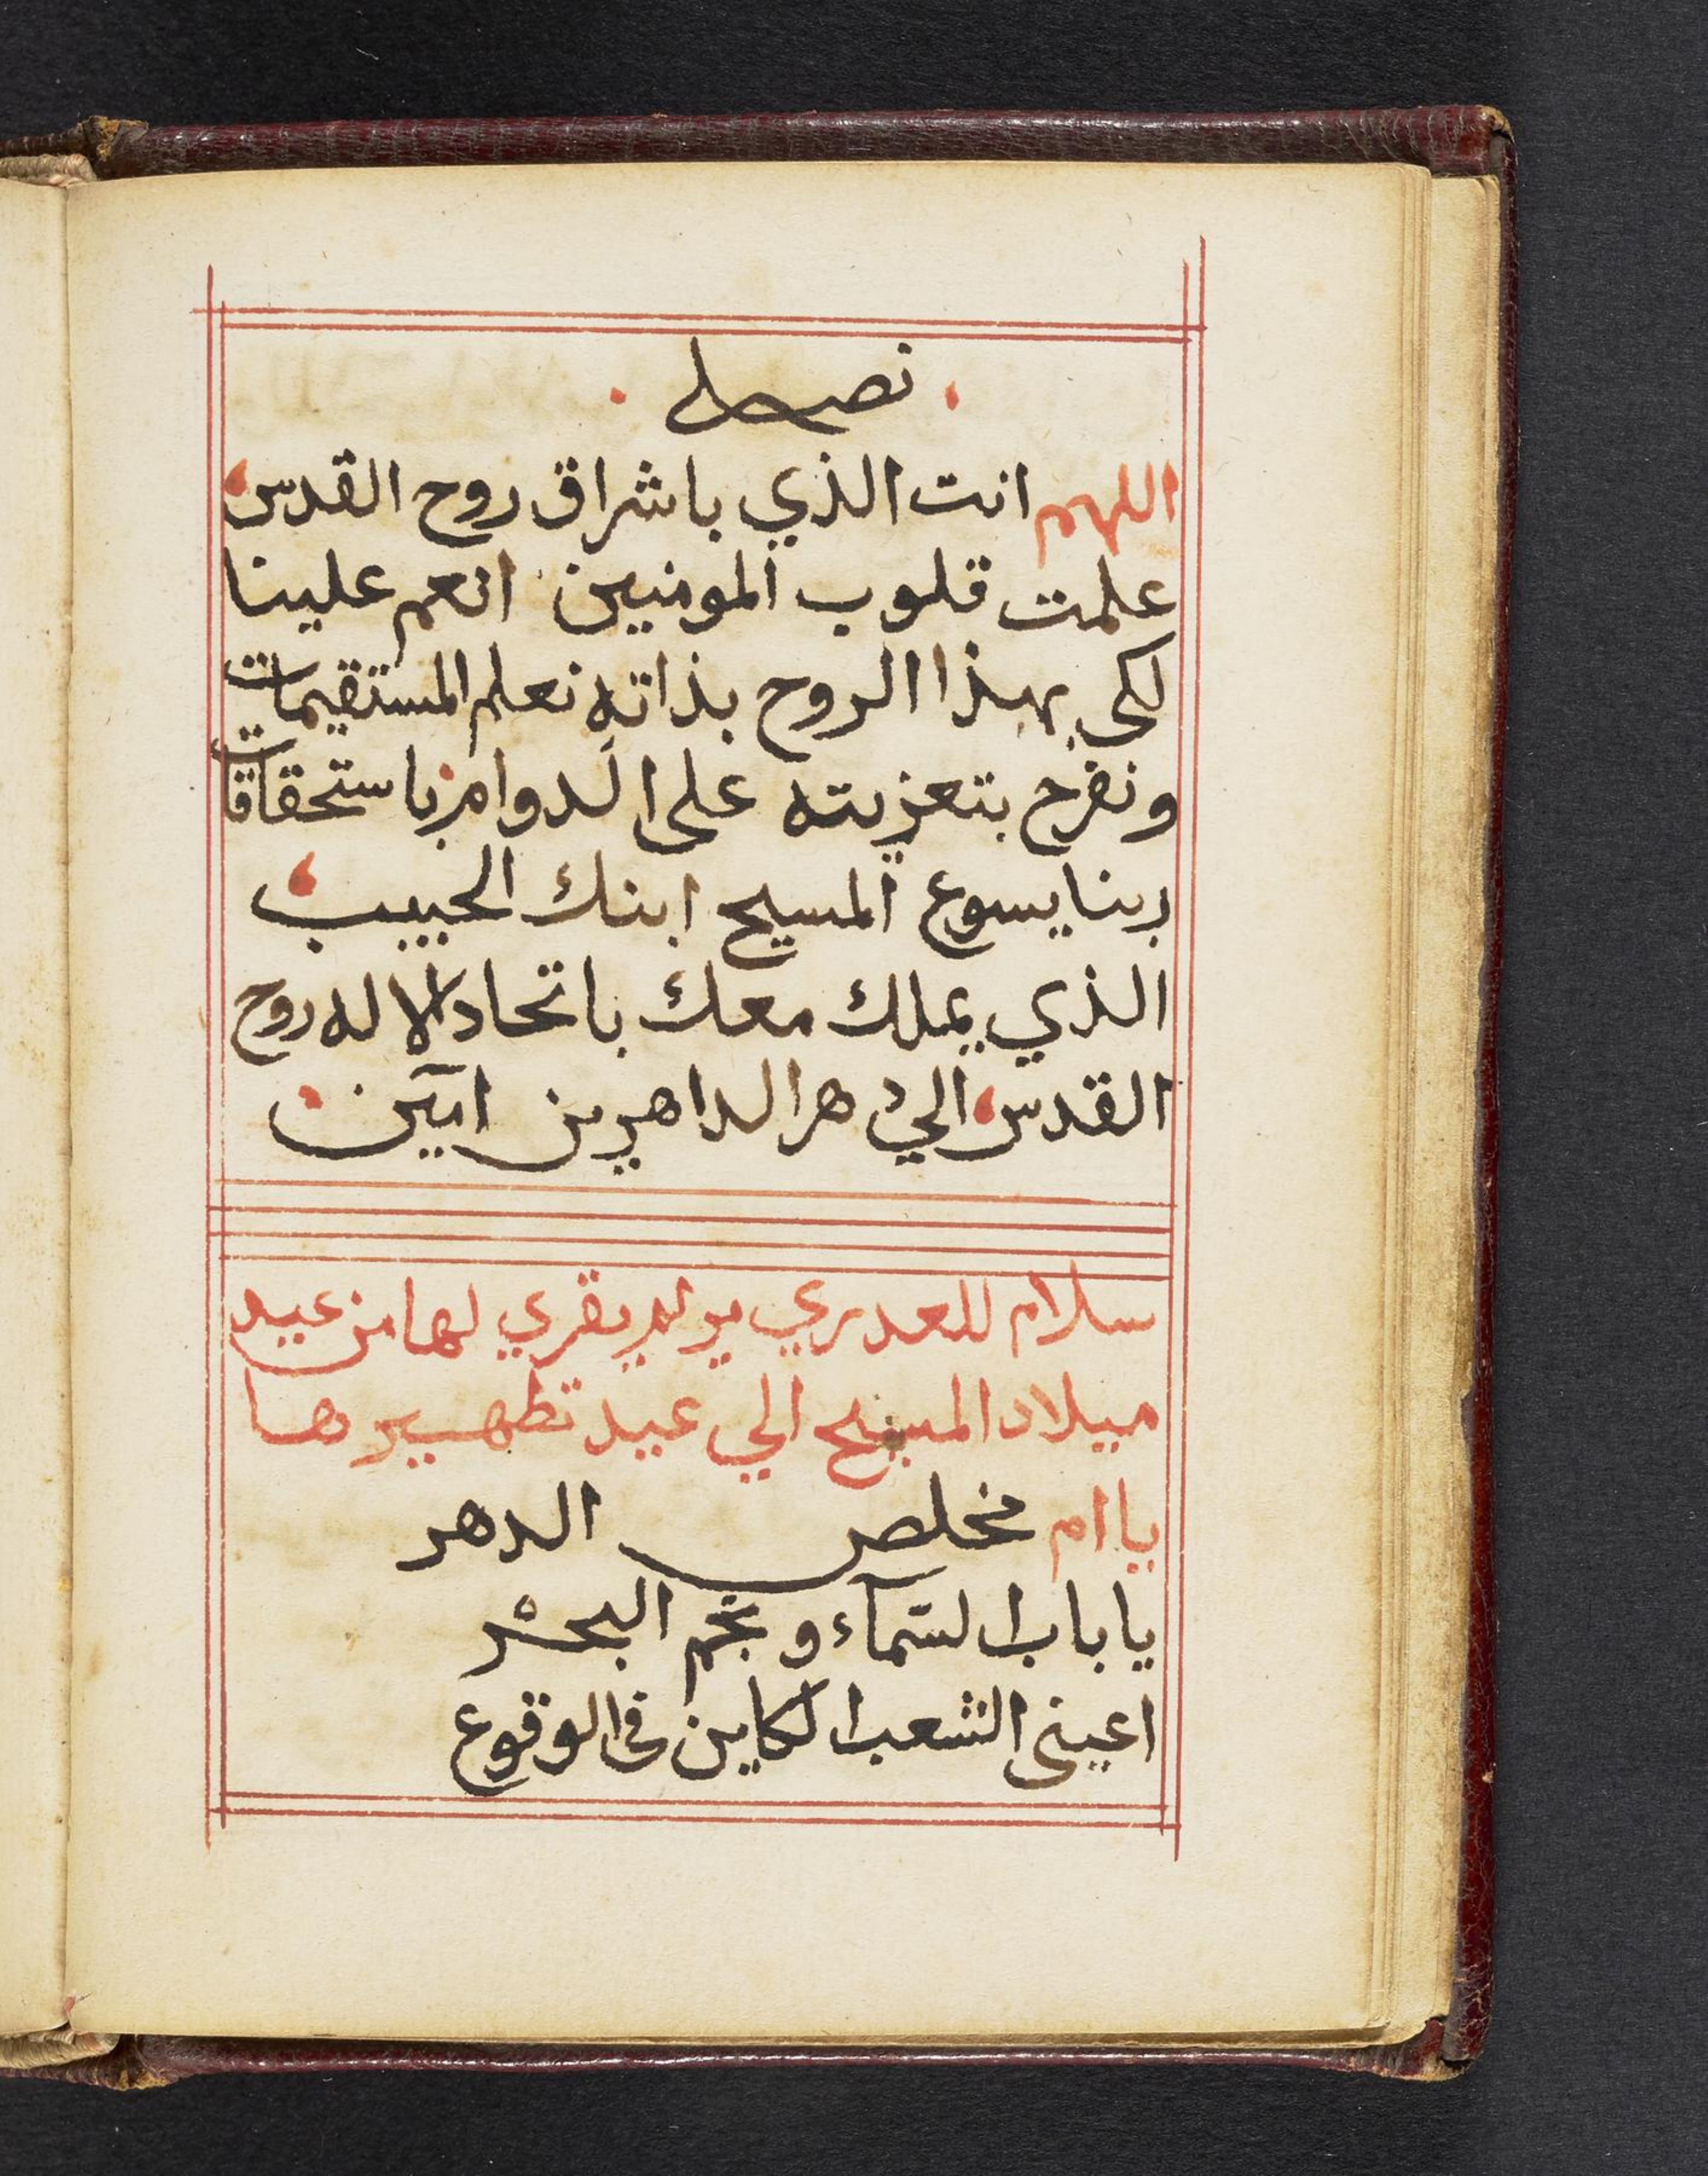 نصلي
اللهم انت الذي باشراق روح القدس
علمت قلوب المومنين انعم علينا
لكي بهذا الروح بذاته نعلم المستقيمات
ونفرح بتعزيته على الدوام باستحقاقات
ربنا يسوع المسيح ابنك الحبيب
الذي يملك معك باتحاد الاله روح
القدس الي دهر الداهرين امين
سلام للعدري مريم يقري لها من عيد
ميلاد المسيح الي عيد تطهيرها
يا ام مخلص الدهر
يا باب السمآء ونجم البحر
اعيني الشعب الكاين في الوقوع